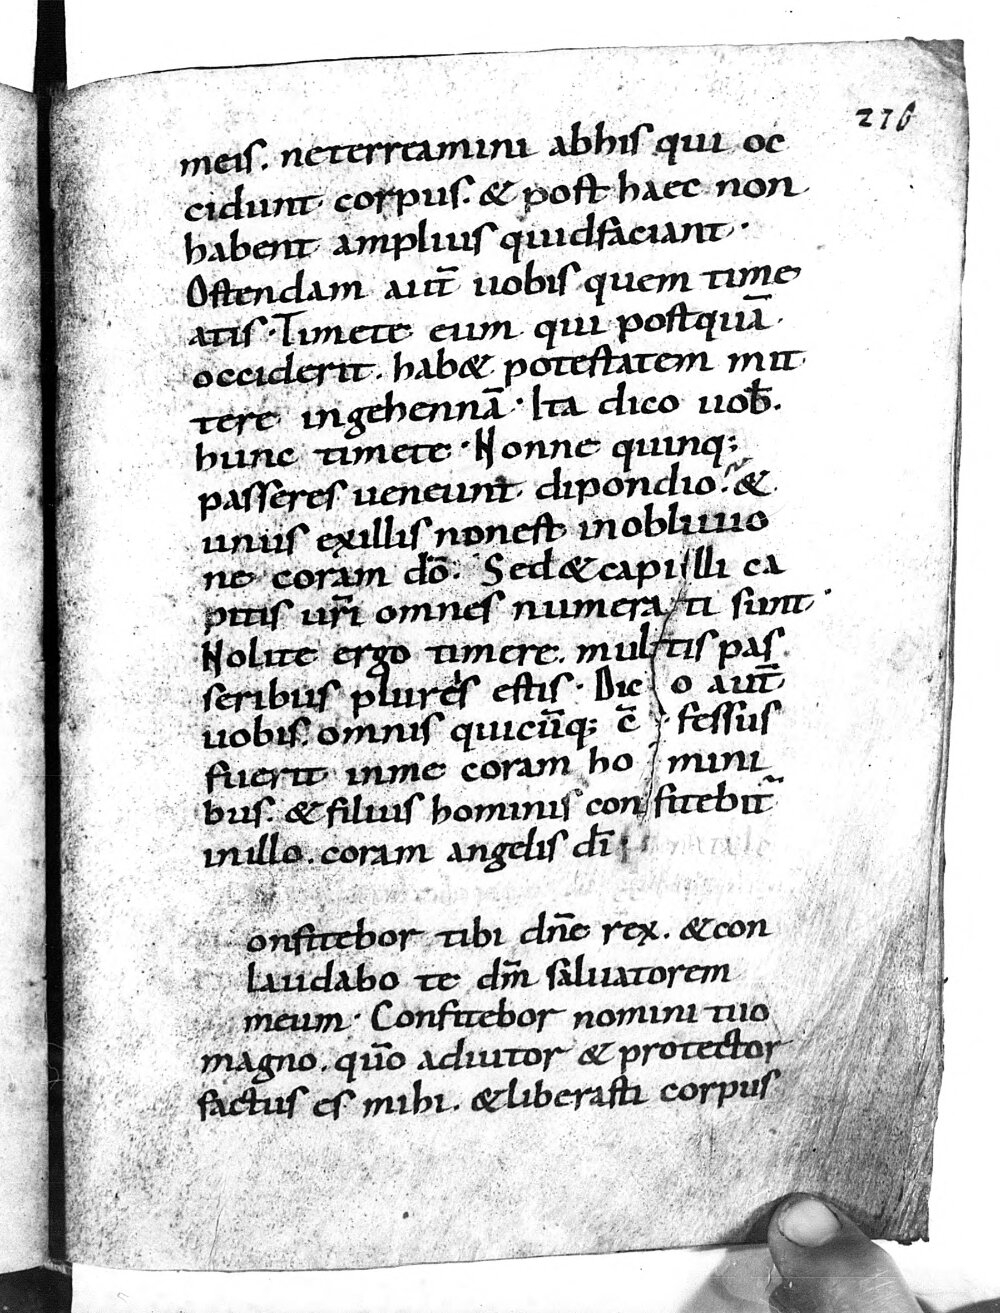 276
meis. neterreamini abhis qui oc
cidunt corpus. & post haec non
habent amplius quidfaciant.
Ostendam aut̄ uobis quem time
atis. Timete eum qui postquā
occiderit. hab& potestatem mit
tere ingehennā. Ita dico uob̄.
hunc timete. Nonne quinq;
passeres ueneunt dipondio. &
unus exillis nonest inobliuio
ne coram dō. Sed & capilli ca
pitis ur̄i omnes numerati sunt.
Nolite ergo timere. multis pas
seribus plures estis. Dico aut̄
uobis. omnis quicūq; c̄fessus
fuerit inme coram homini
bus. & filius hominis confitebit̄
inillo. coram angelis dī
onfitebor tibi dn̄e rex. & con
laudabo te dm̄ saluatorem
meum. Confitebor nomini tuo
magno. qūo adiutor & protector
factus es mihi. & liberasti corpus